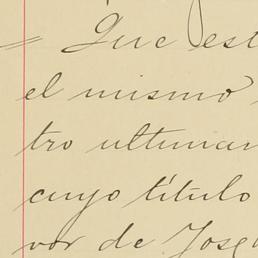 = Que est
el mismo
tro ultiman
cuyo título
vor de Jose